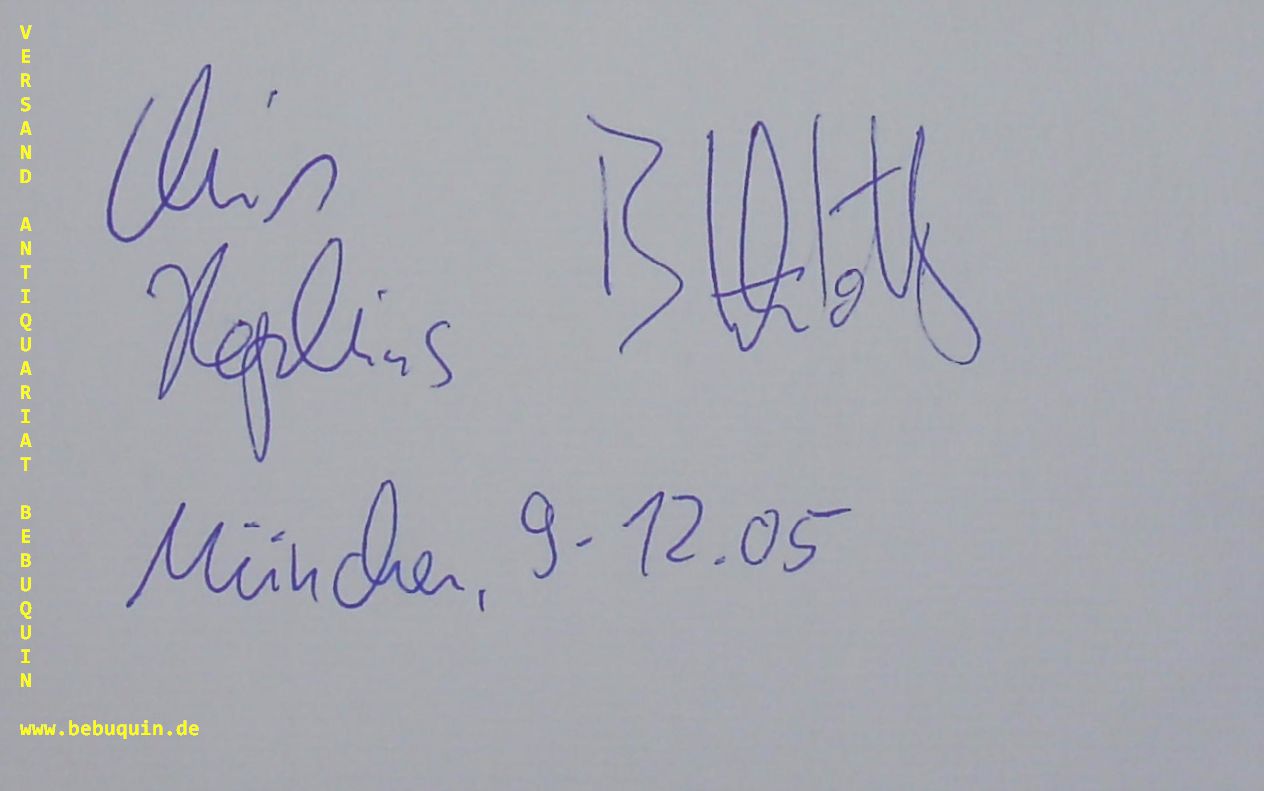 VERSAND ANTIQUARIAT BEBUQUIN
Chris
München, 9-12.05
www.bebuquin.de